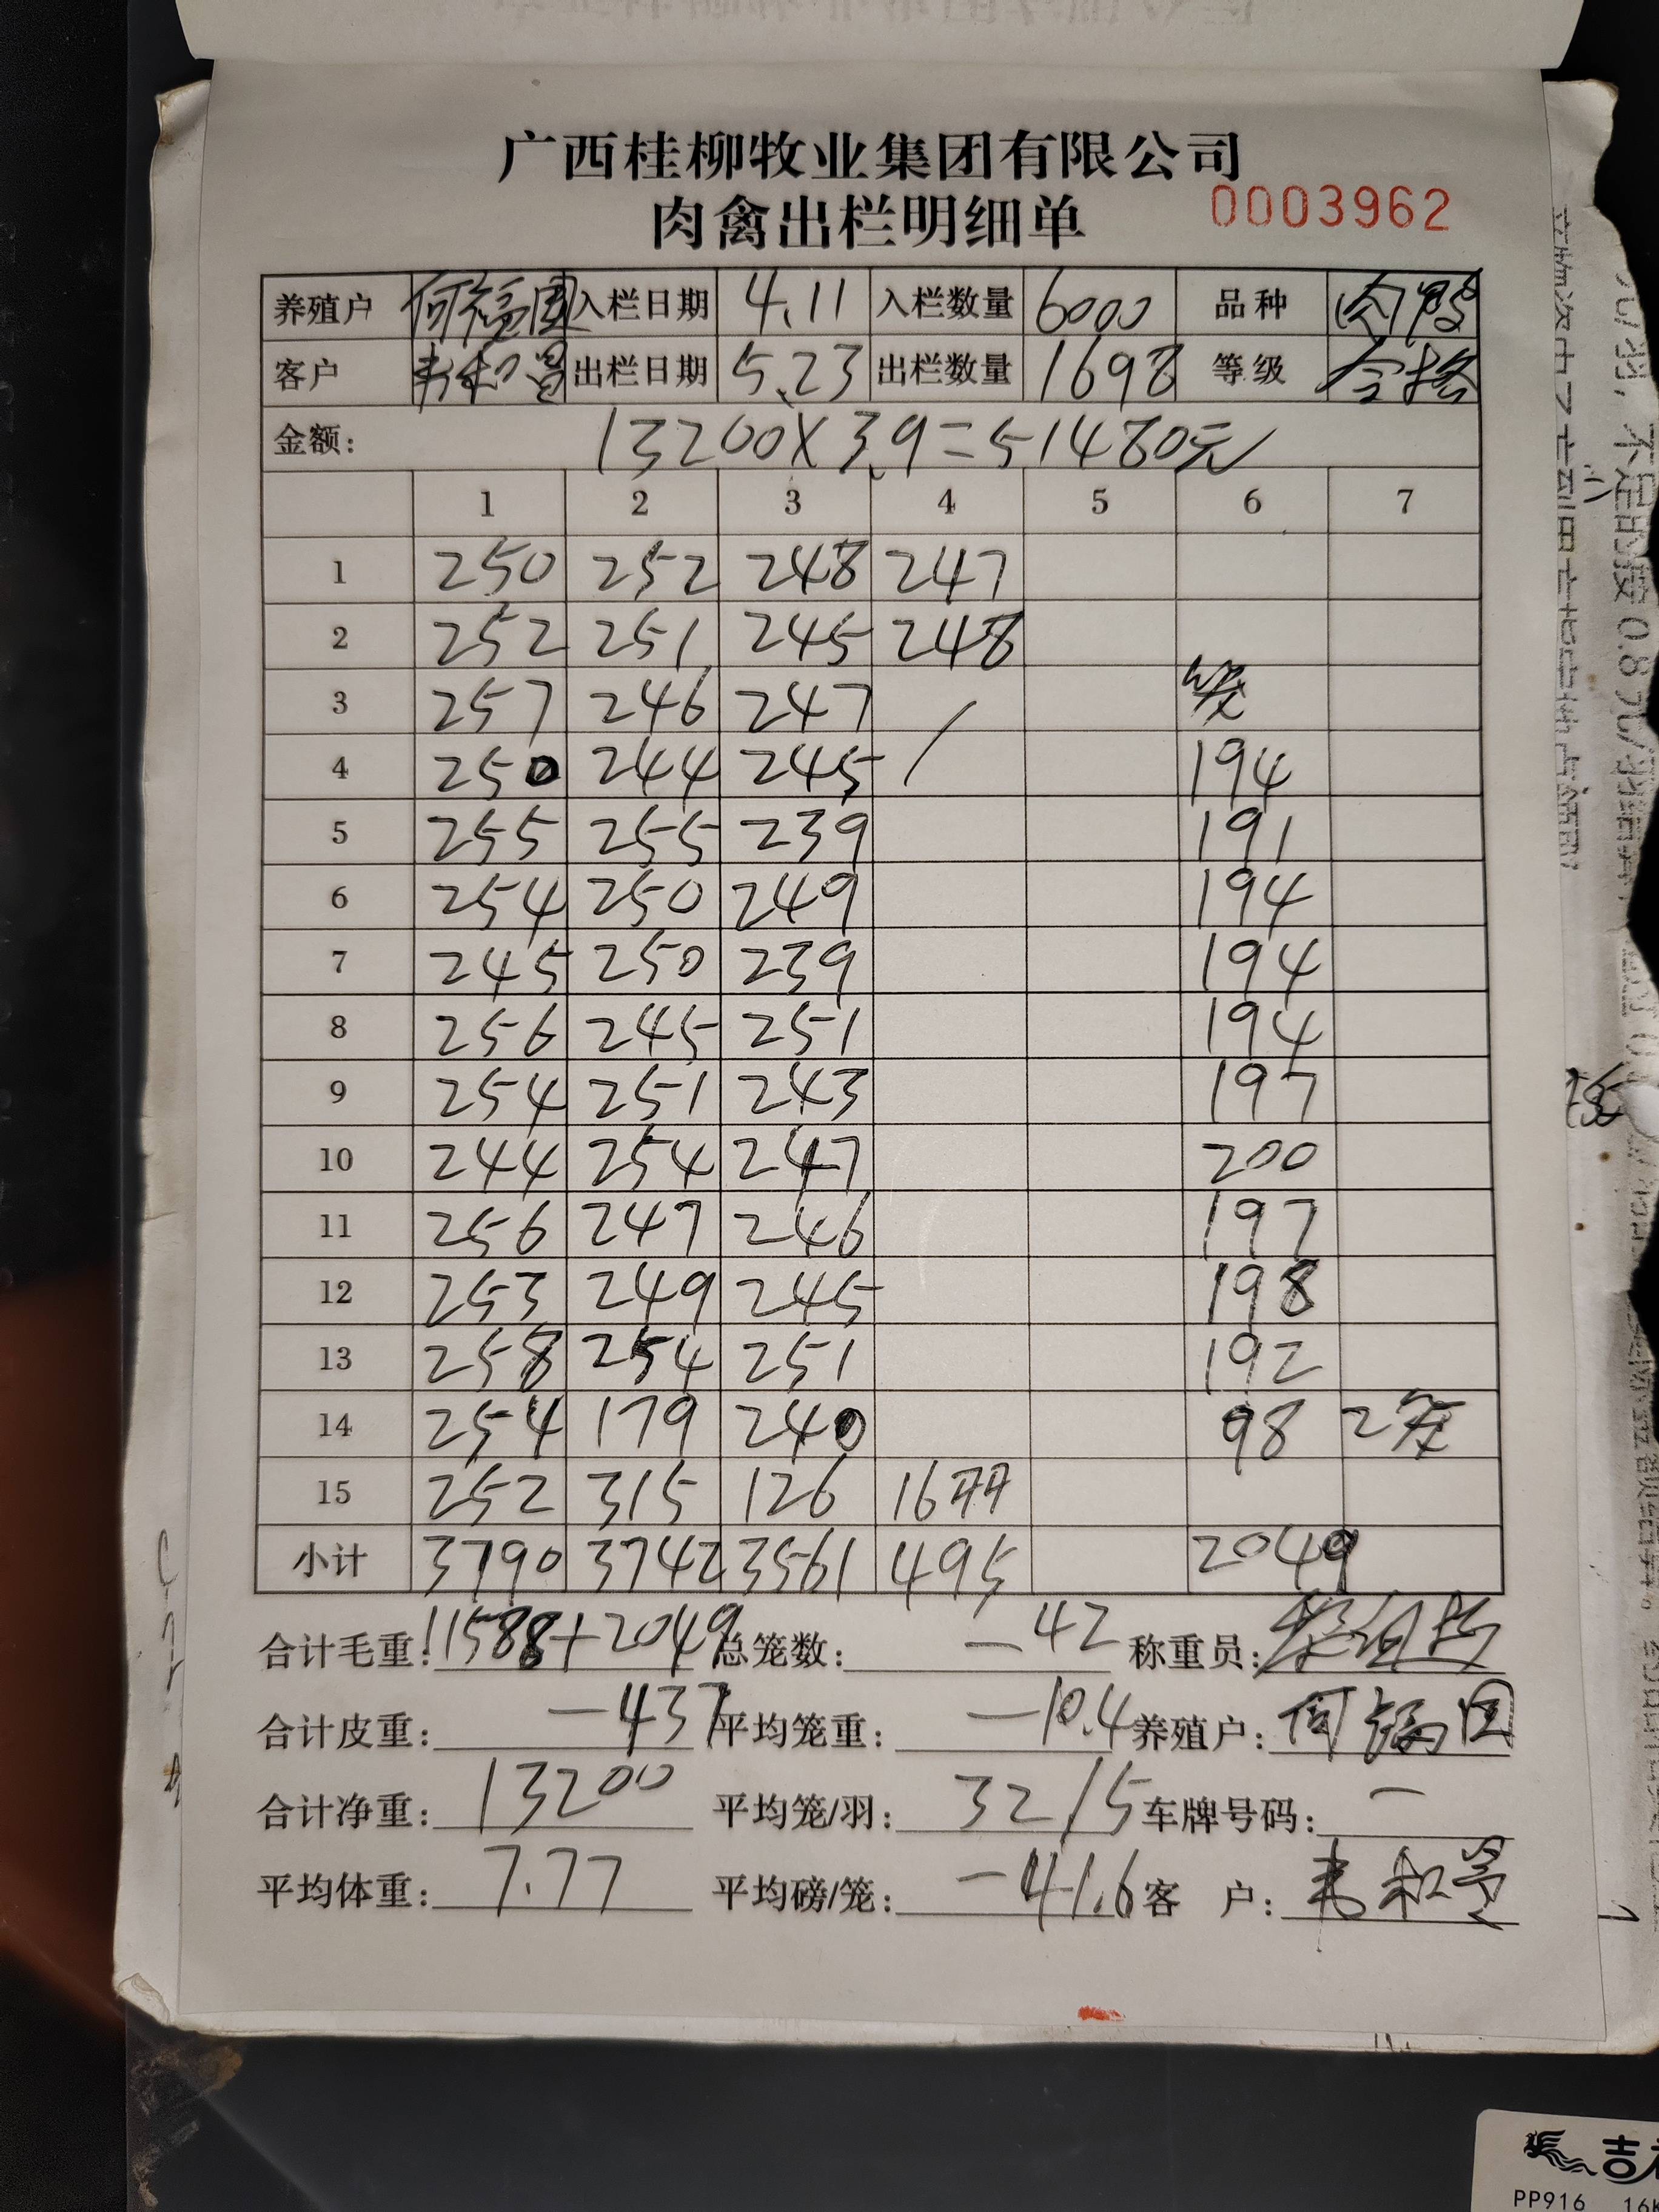 广西桂柳牧业集团有限公司
肉禽出栏明细单 0003962
养殖户 何福国 入栏日期 4.11 入栏数量 6000 品种 肉鸭
客户 韦和 出栏日期 5.23 出栏数量 1698 等级 合格
金额: 13200X3.9=51480元
1 2 3 4 5 6 7
1 250 252 248 247
2 252 251 245 248
3 257 246 247 /
4 250 244 245 194
5 255 255 239 191
6 254 250 249 194
7 245 250 239 194
8 256 245 251 194
9 254 251 243 197
10 244 254 247 200
11 256 247 246 197
12 253 249 245 198
13 258 254 251 192
14 254 179 240 98
15 252 315 126
小计 3790 3742 3561 495 2049
合计毛重: 11588+2049 总笼数: -42 称重员:
合计皮重: -437 平均笼重: -10.4 养殖户: 何福国
合计净重: 13200 平均笼/羽: 32/5 车牌号码: 一
平均体重: 7.77 平均磅/笼: -41.6 客 户: 韦和
PP916 16K